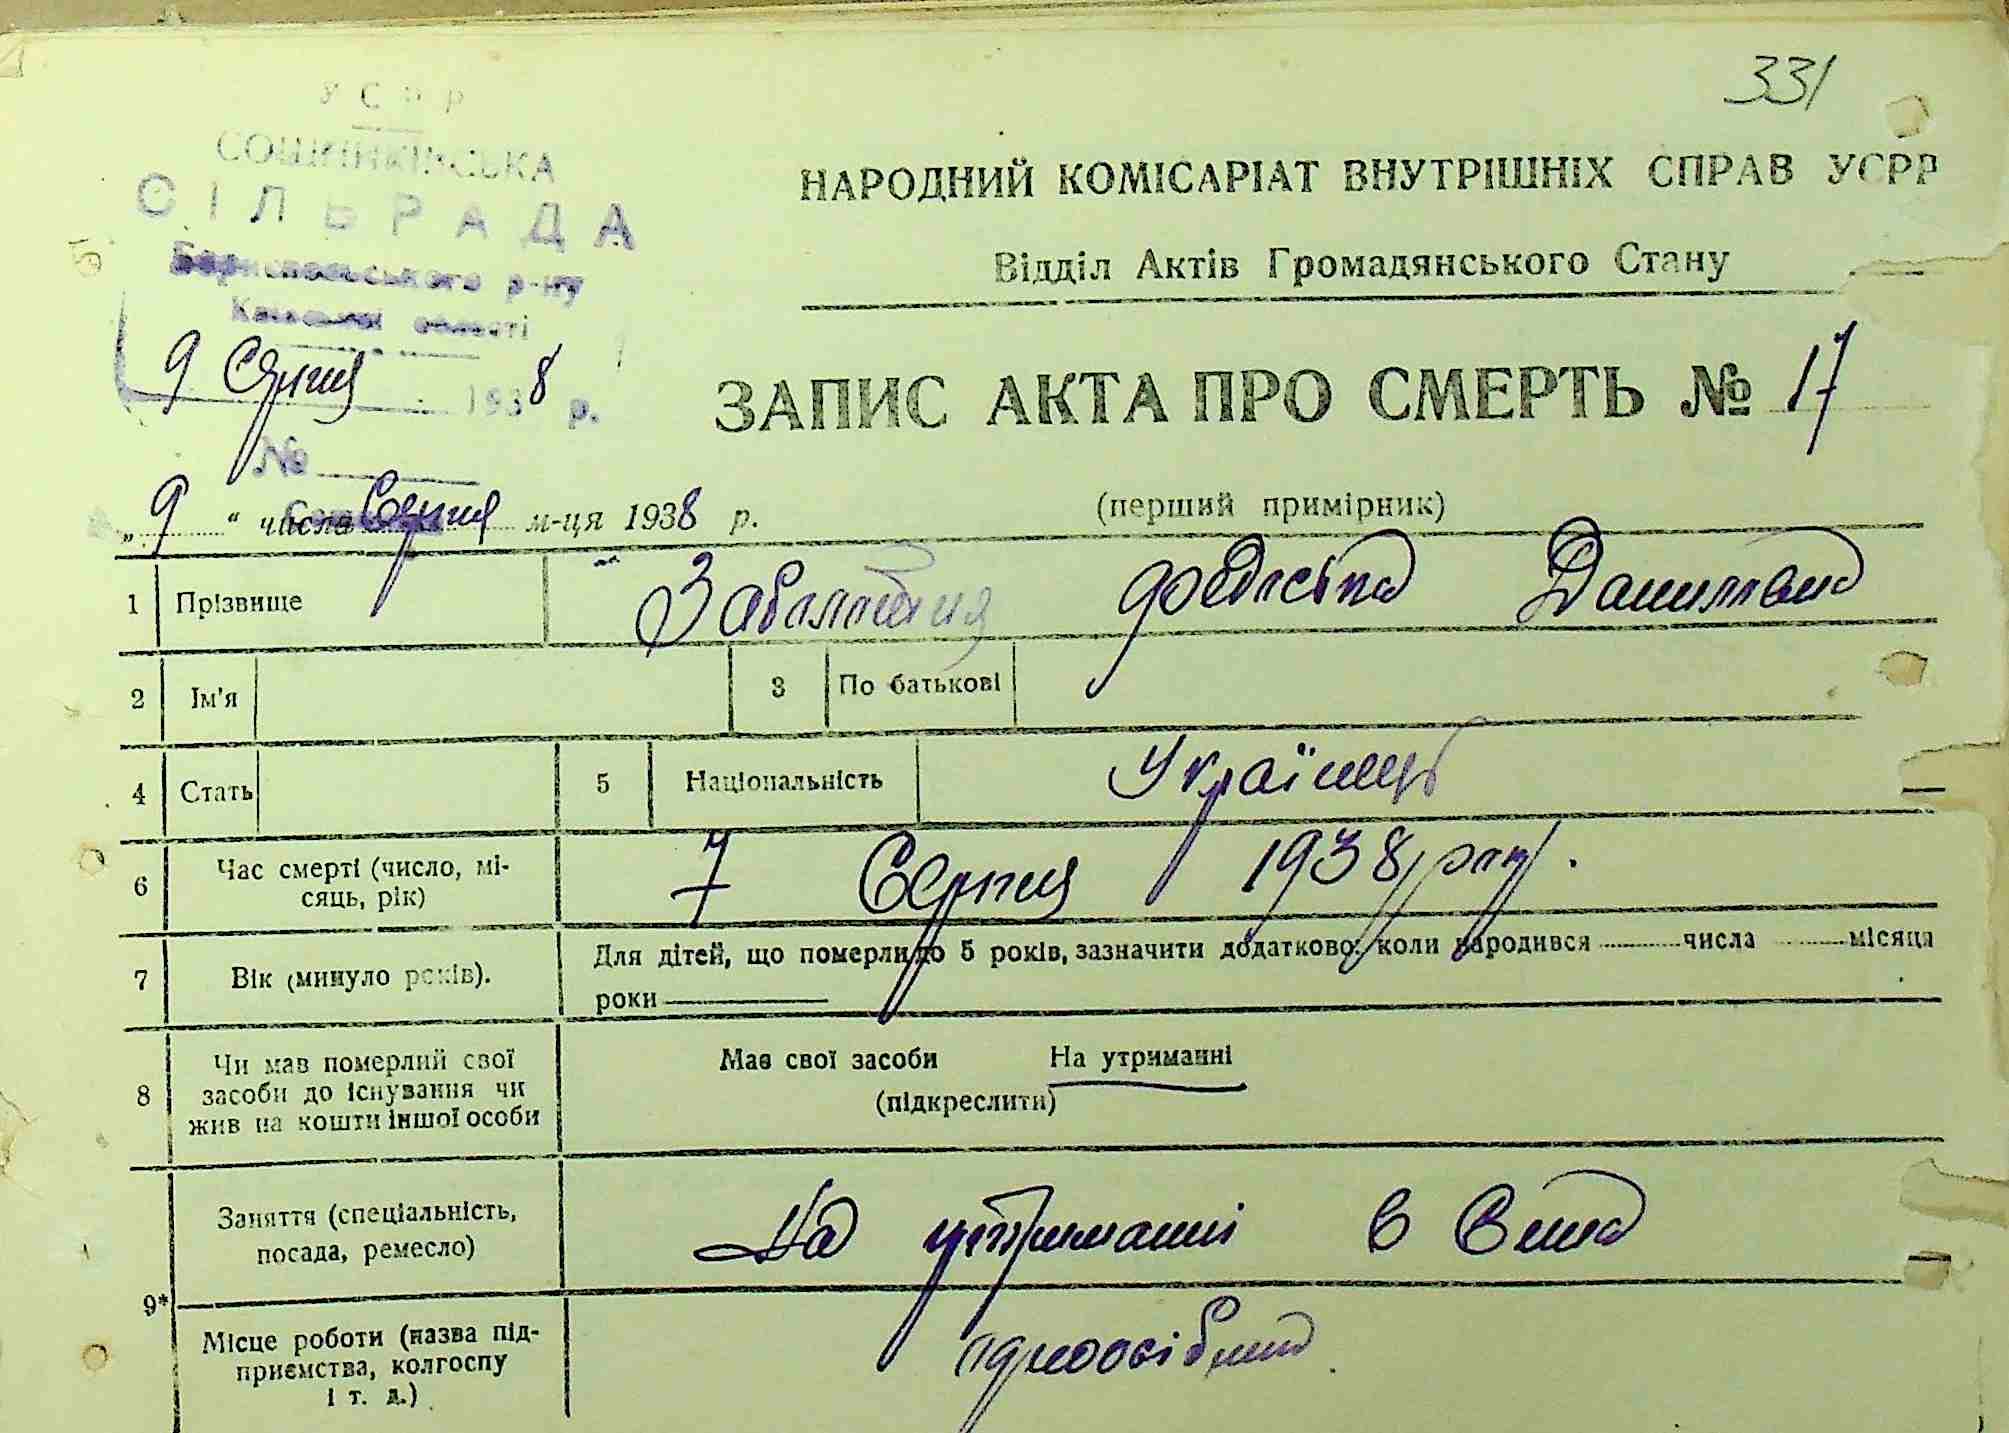 331
УСРР
СОШНИКІВСЬКА
СІЛЬРАДА
Бориспольського р-ну
Київської області
9 Серпня 1938 р.
№
НАРОДНИЙ КОМІСАРІАТ ВНУТРІШНІХ СПРАВ УСРР
Відділ Актів Громадянського Стану
ЗАПИС АКТА ПРО СМЕРТЬ № 17
„ 9 “ числа Серпня м-ця 1938 р.
(перший примірник)
1 Прізвище Данилівна
2 Ім'я 3 По батькові
4 Стать 5 Національність Українець
6 Час смерті (число, мі-
сяць, рік) 7 Серпня 1938 року.
7 Вік (минуло років). Для дітей, що померли до 5 років, зазначити додатково: коли народився числа місяця
роки
8 Чи мав померлий свої
засоби до існування чи
жив на кошти іншої особи
Мав свої засоби На утриманні
(підкреслити)
9* Заняття (спеціальність,
посада, ремесло) На утриманні в
Місце роботи (назва під-
приємства, колгоспу
і т. д.)